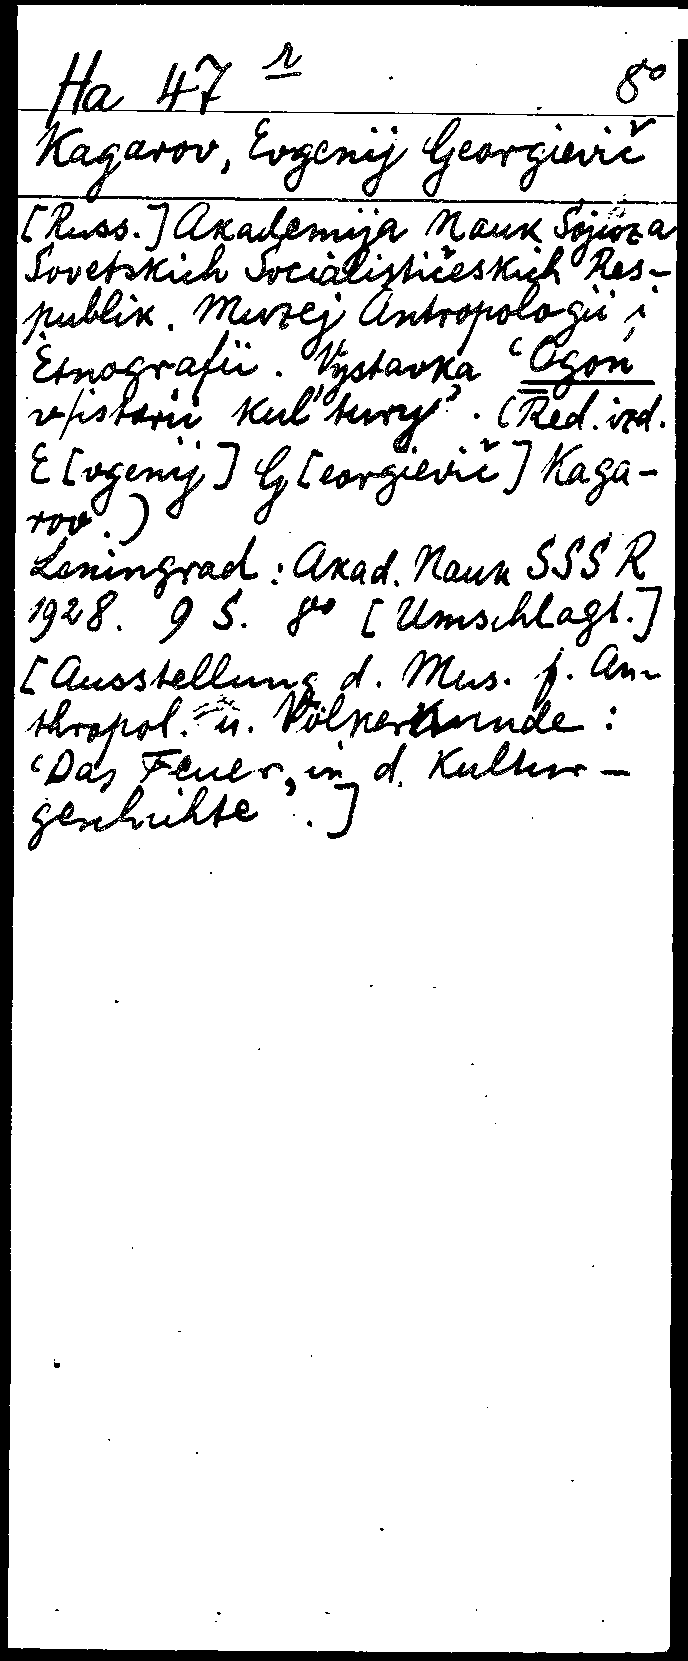 Ha 47 r 8°
Kagarov, Evgenij Georgievič
[Russ.] Akademija Nauk Sojuza
Sovetskich Socialističeskich Res-
publik. Muzej Antropologii i
Ėtnografii. Vystavka 'Ogoń
v istorii kul'tury'. (Red. izd.
E[vgenij] G[eorgievič] Kaga-
rov.)
Leningrad: Akad. Nauk SSSR
1928. 9 S. 8° [Umschlagt.]
[Ausstellung d. Mus. f. An-
thropol. u. Völkerkunde:
'Das Feuer in d. Kultur-
geschichte'.]